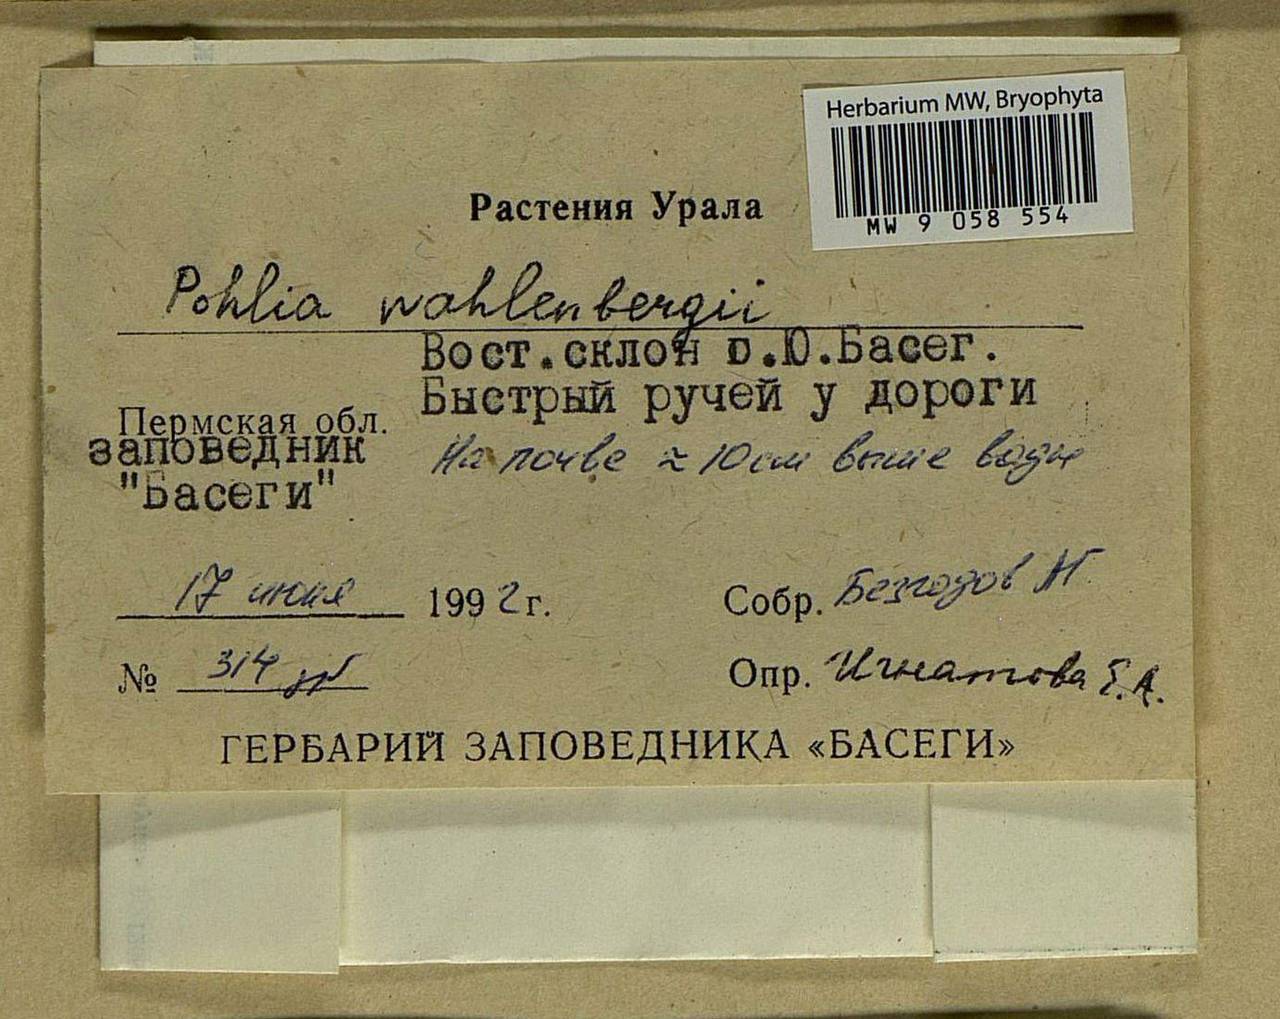 Herbarium MW, Bryophyta
MW 9 058 554
Растения Урала
Pohlia wahlenbergii
Вост.склон г.Ю.Басег.
Быстрый ручей у дороги
Пермская обл.
заповедник
"Басеги"
На почве ≈ 10 см выше воды
17 июня 1992 г.
Собр. Безгодов А Г
№ 314
Опр. Игнатова Е.А.
ГЕРБАРИЙ ЗАПОВЕДНИКА «БАСЕГИ»